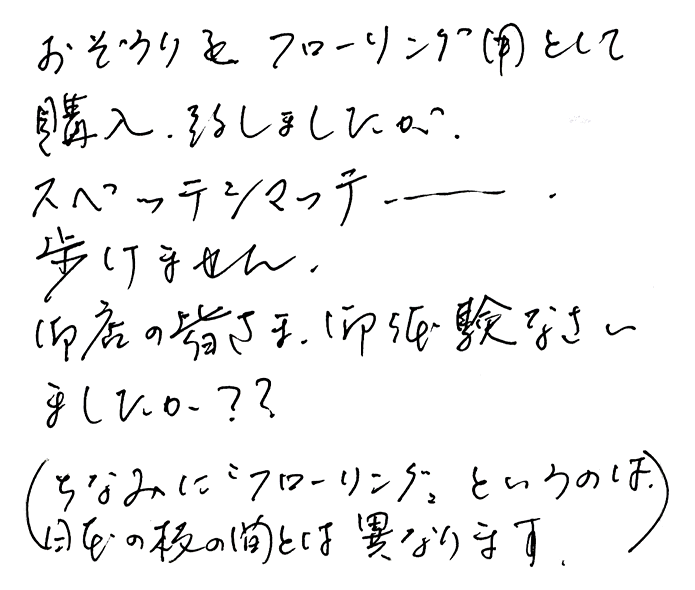 おぞうりを フローリング用として
購入.致しましたが.
スベッテシマッテ.―――.
歩けません.
御店の皆さま.御体験なさい
ましたか??
(ちなみに「フローリング」というのは.
日本の板の間とは異なります.)